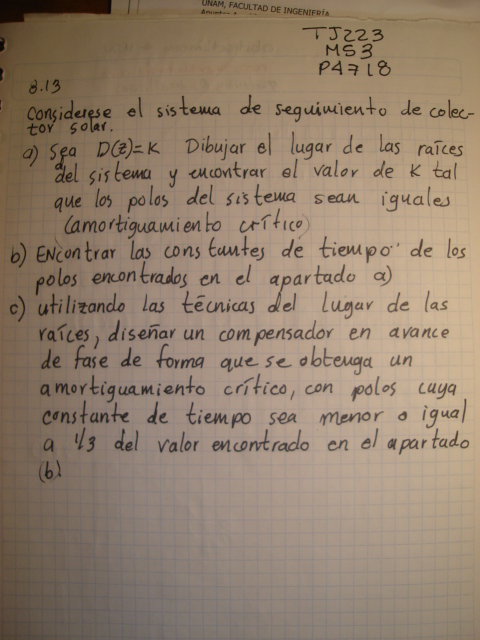 UNAM, FACULTAD DE INGENIERÍA
TJ223
M53
P4718
8.13
Considerese el sistema de seguimiento de colec-
tor solar.
a) Sea D(z)=K Dibujar el lugar de las raíces
del sistema y encontrar el valor de K tal
que los polos del sistema sean iguales
(amortiguamiento crítico)
b) Encontrar las constantes de tiempo de los
polos encontrados en el apartado a)
c) utilizando las técnicas del lugar de las
raíces, diseñar un compensador en avance
de fase de forma que se obtenga un
amortiguamiento crítico, con polos cuya
constante de tiempo sea menor o igual
a 1/3 del valor encontrado en el apartado
(b)